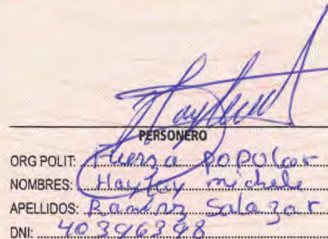 PERSONERO
ORG POLIT: Fuerza popular
NOMBRES: michele
APELLIDOS: Ramirez Salazar
DNI: 40396398